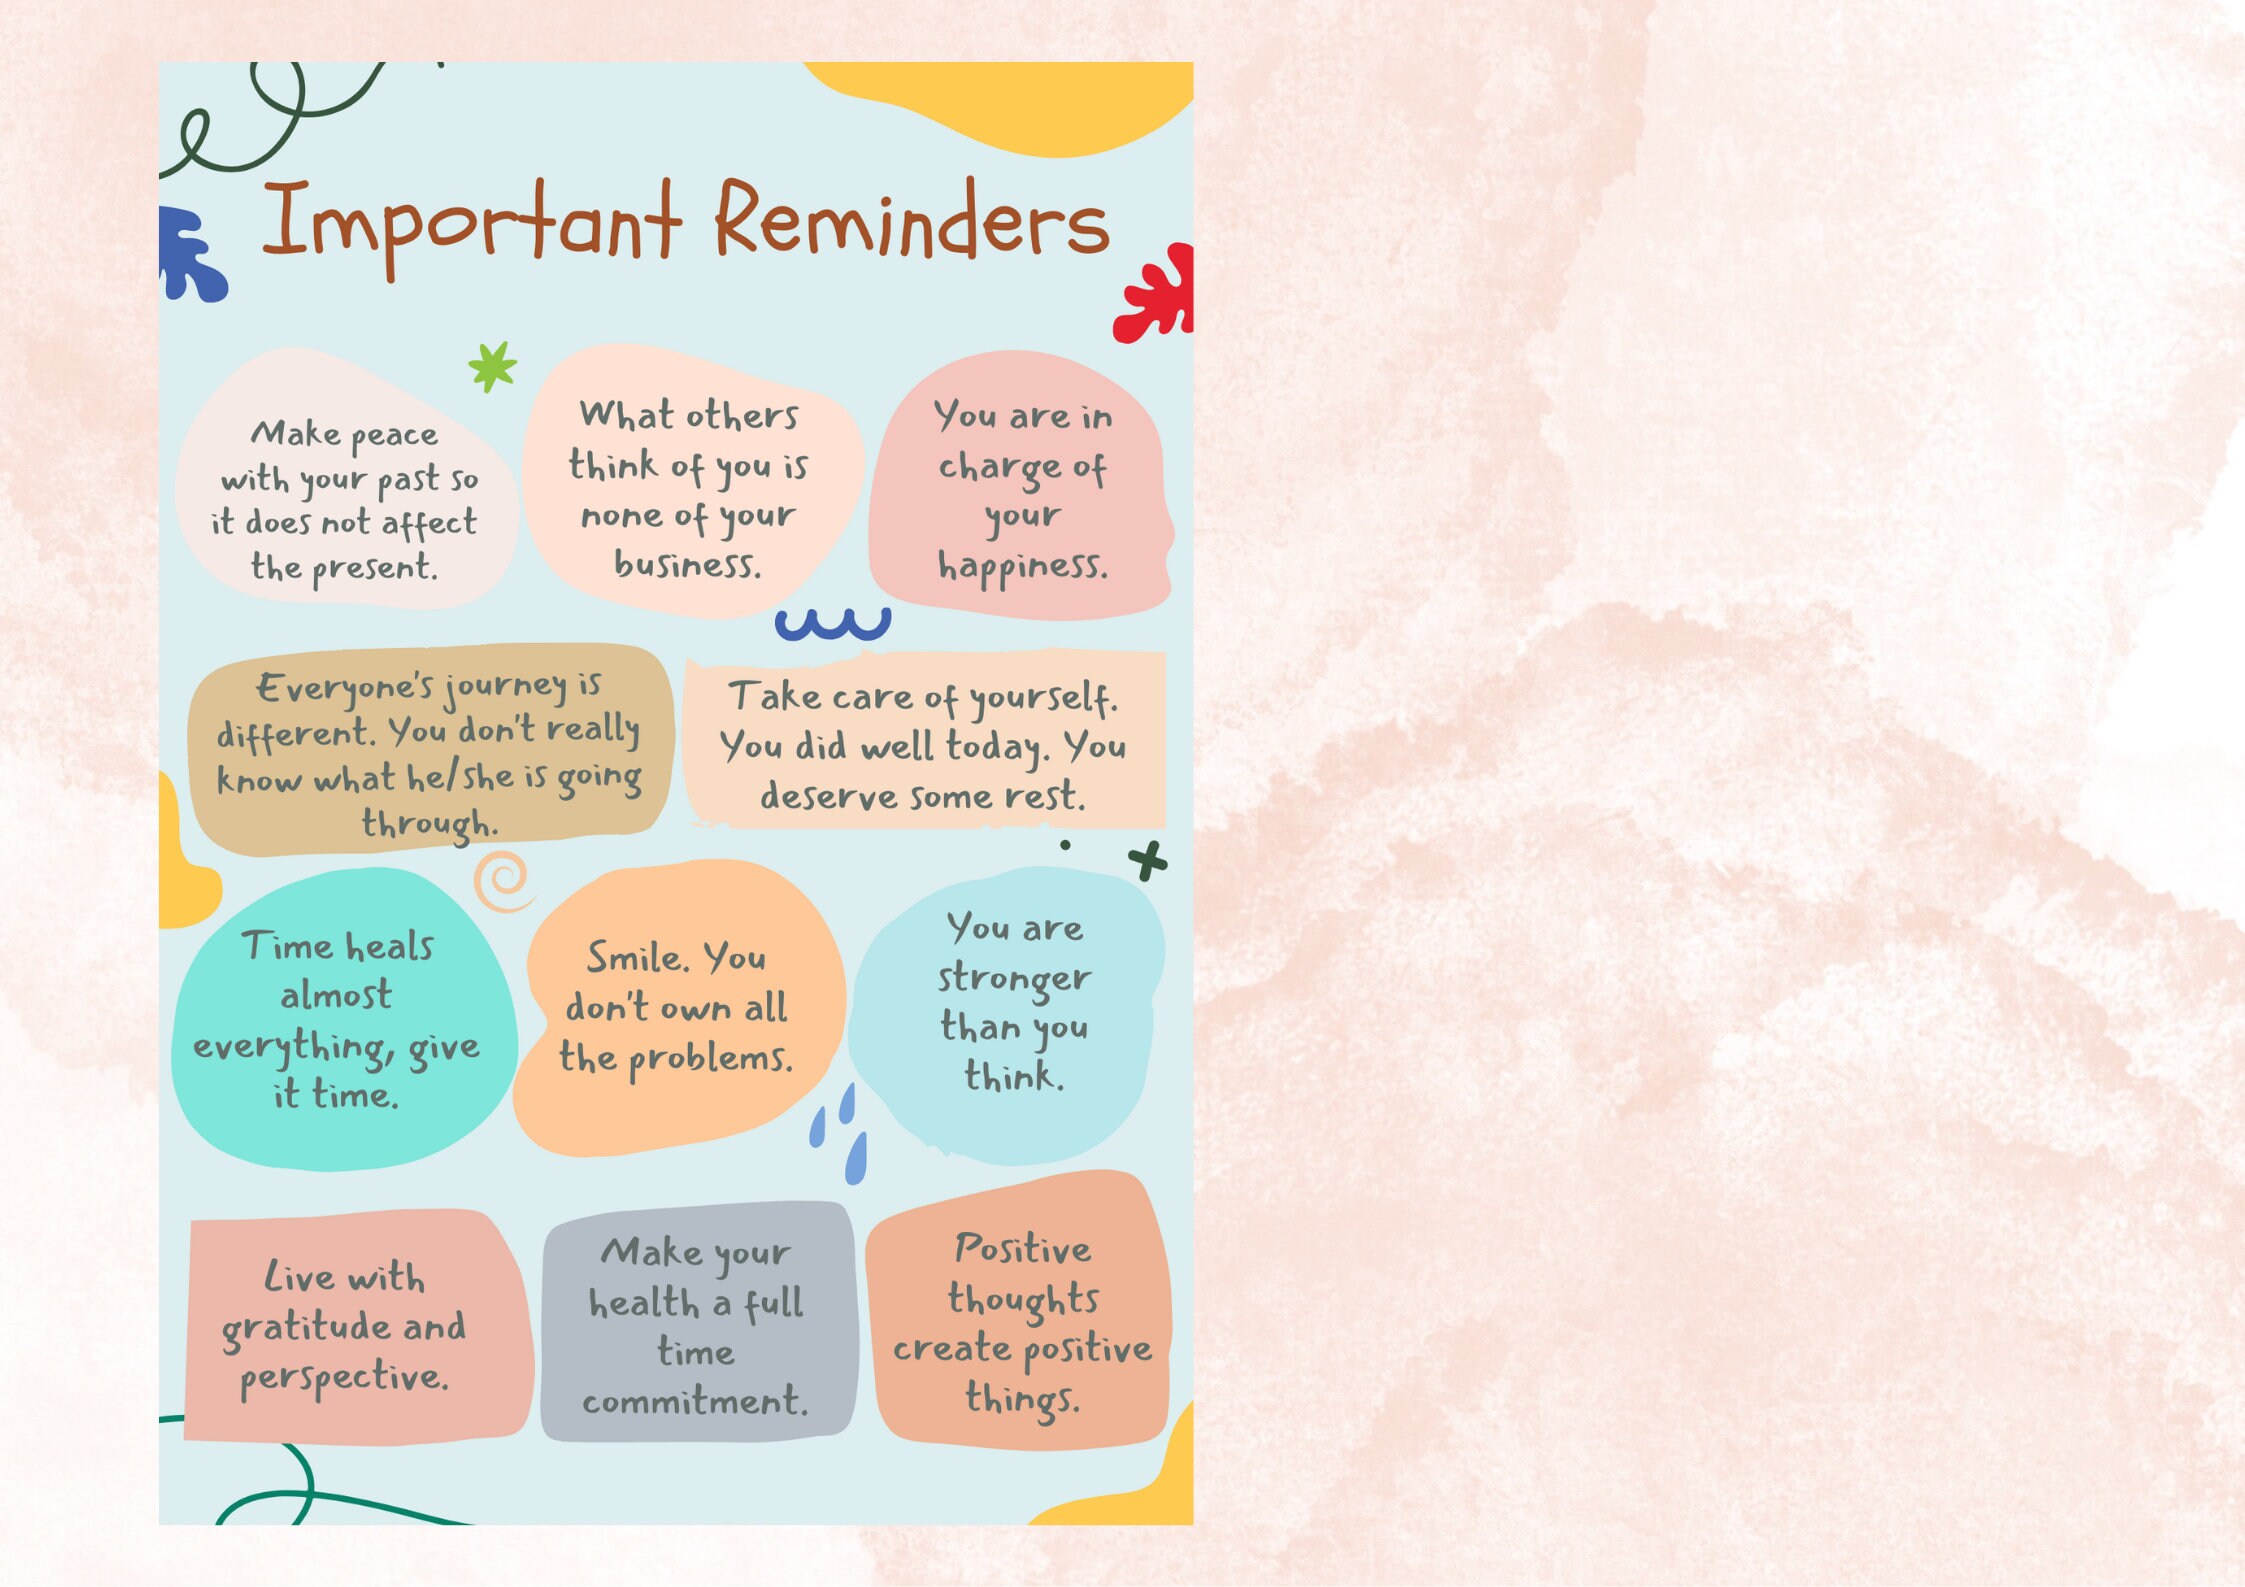 Important Reminders
Make peace
with your past so
it does not affect
the present.
What others
think of you is
none of your
business.
You are in
charge of
your
happiness.
Everyone's journey is
different. You don't really
know what he/she is going
through.
Take care of yourself.
You did well today. You
deserve some rest.
Time heals
almost
everything, give
it time.
Smile. You
don't own all
the problems.
You are
stronger
than you
think.
Live with
gratitude and
perspective.
Make your
health a full
time
commitment.
Positive
thoughts
create positive
things.